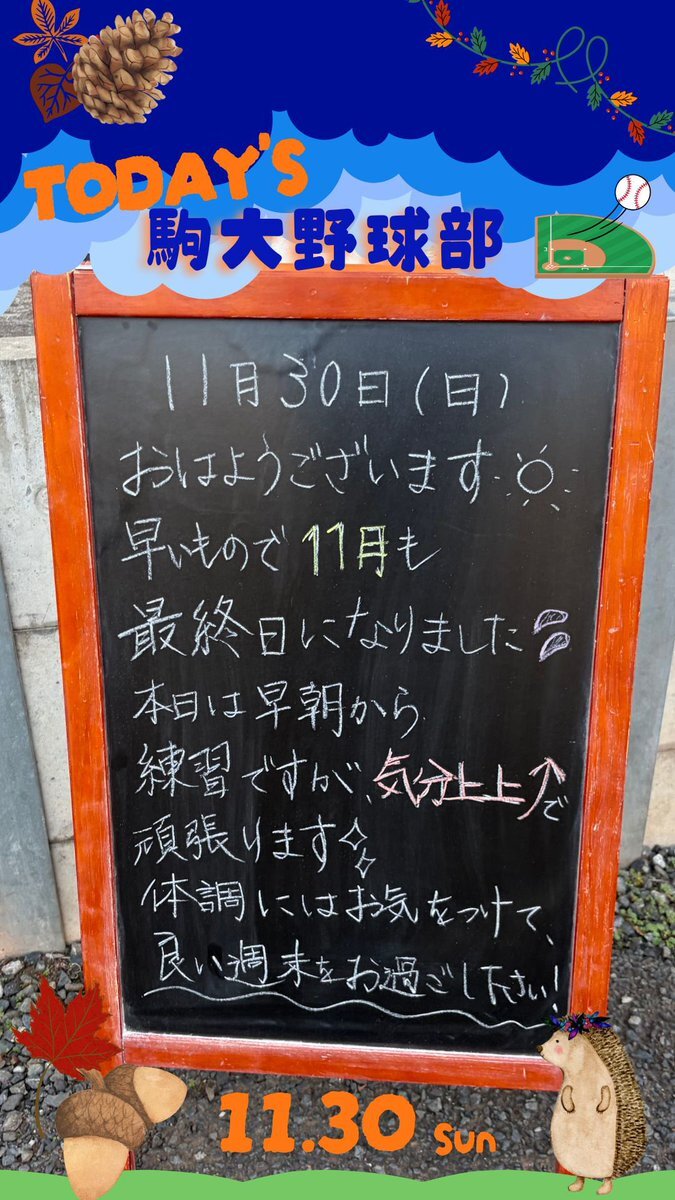 TODAY'S
駒大野球部
11月30日(日)
おはようございます
早いもので11月も
最終日になりました
本日は早朝から
練習ですが、気分上上↑で
頑張ります
体調にはお気をつけて、
良い週末をお過ごし下さい!
11.30 Sun